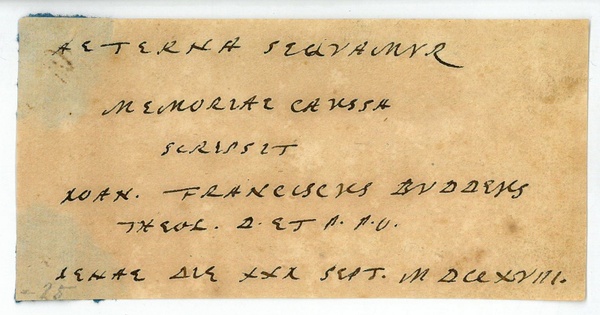 AETERNA SEQVAMVR
MEMORIAE CAVSSA
SCRIPSIT
IOAN. FRANCISCVS BVDDEVS
THEOL. D. ET P. P. O.
IENAE DIE XXX SEPT. M DCCXVIII.
-25